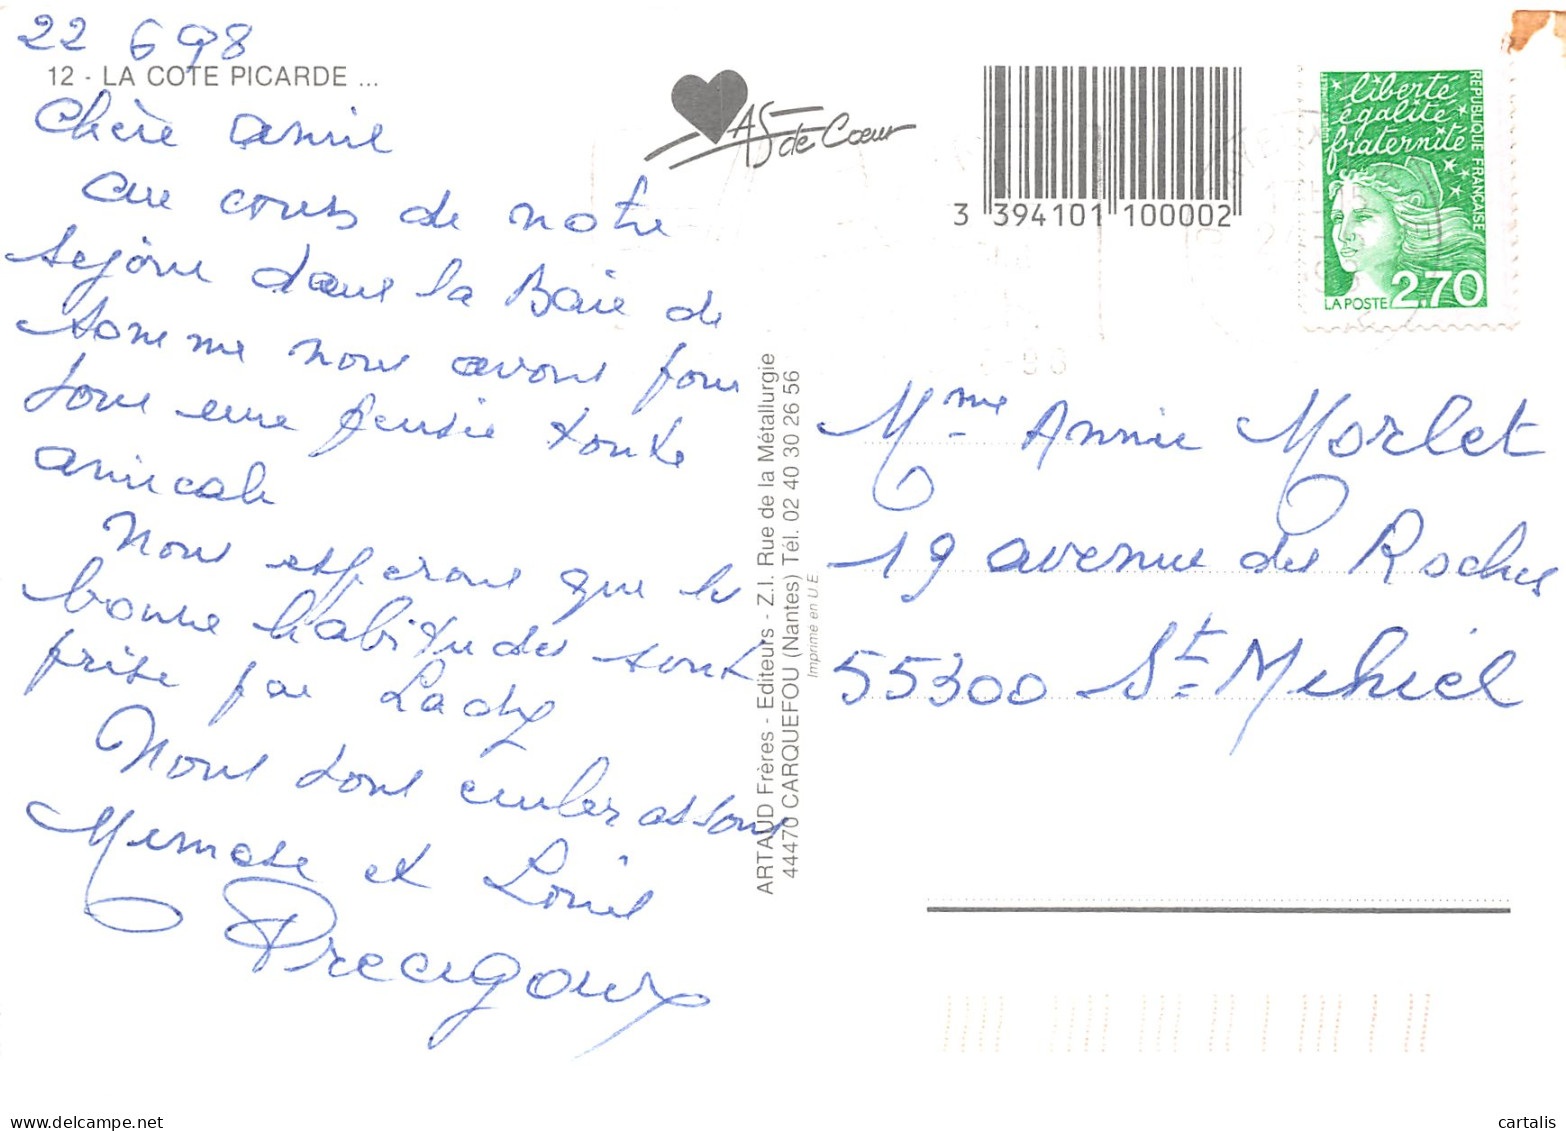 22 6 98
12 - LA COTE PICARDE ...
Chère amie
au cours de notre
séjour dans la Baie de
Somme nous avons pour
vous une pensée toute
amicale
Nous espérons que les
bonne habitudes sont
prise par Lady
Nous vous embrassons
Mimose et Louis
As de Cœur
3 394101 100002
liberté
égalité
fraternité
REPUBLIQUE FRANÇAISE
LA POSTE 2,70
ARTAUD Frères - Editeurs - Z.I. Rue de la Métallurgie
44470 CARQUEFOU (Nantes) Tél. 02 40 30 26 56
Imprimé en U.E
Mme Annie Morlet
19 avenue des Roches
55300 St Mihiel
cartalis